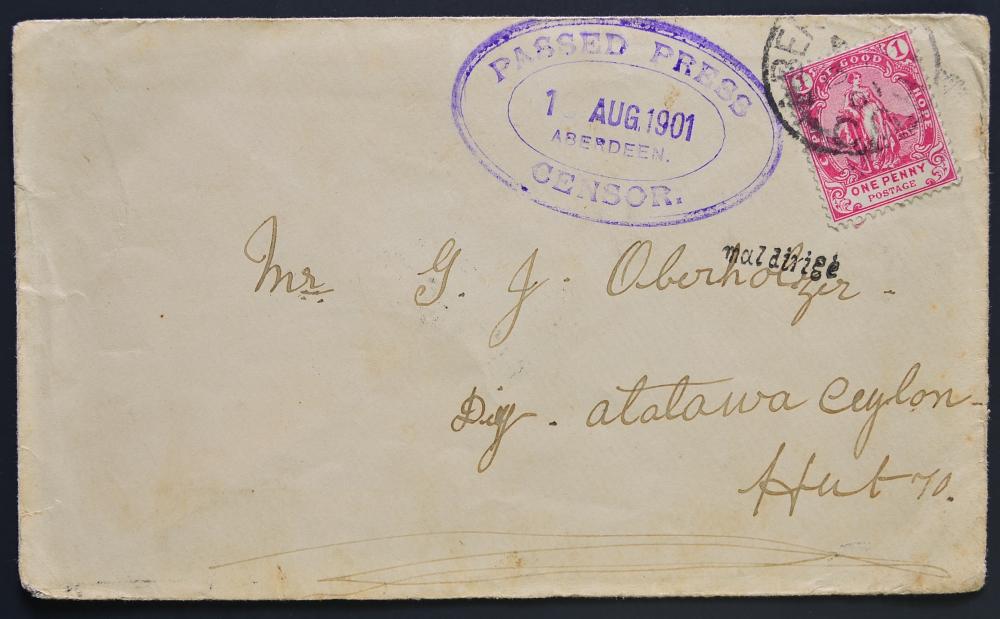 PASSED PRESS
1 AUG. 1901
ABERDEEN.
CENSOR.
OF GOOD HOPE
1 1
ONE PENNY
POSTAGE
maldirigé
Mr. G. J. Oberholzer -
Diy - atatawa Ceylon -
Hut 70.